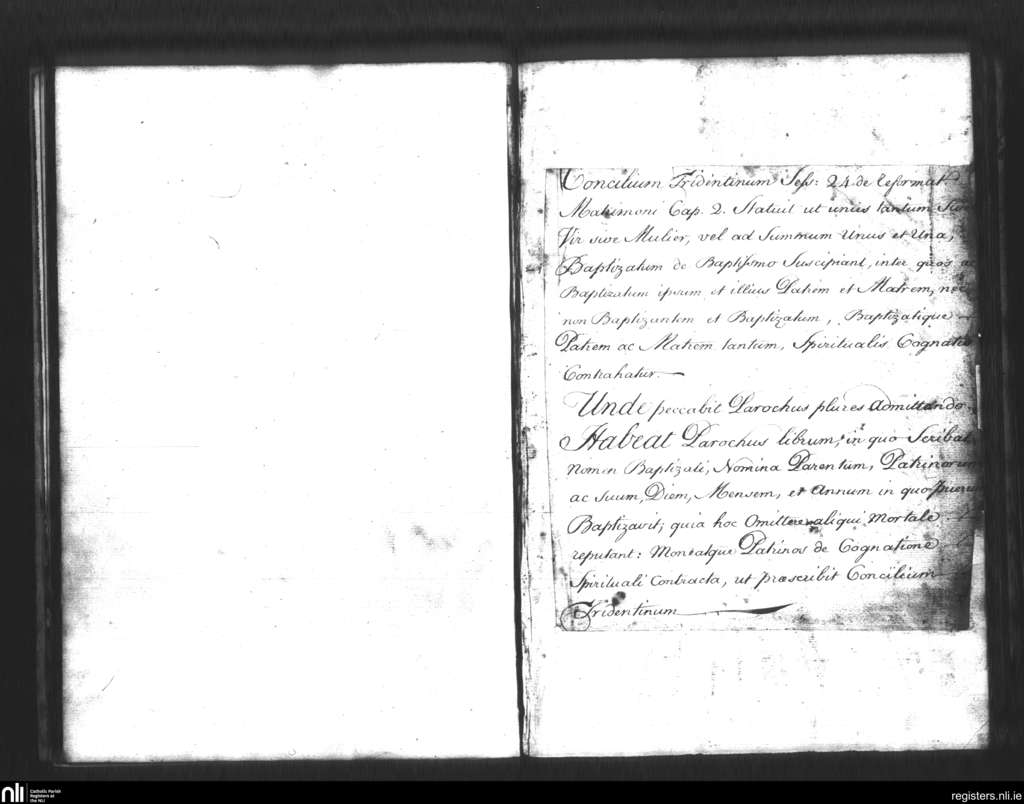 Concilium Tridentinum Sess: 24 de Reformat
Matrimoni Cap. 2. Statuit ut unus tantum sive
Vir sive Mulier, vel ad Summum Unus et Una,
Baptizatum de Baptismo Suscipiant, inter quos ac
Baptizatum ipsum et illius Patrem et Matrem, nec
non Baptizantem et Baptizatum, Baptizatique
Patrem ac Matrem tantum, Spiritualis Cognatio
Contrahatur.
Unde peccabit Parochus plures admittendo.
Habeat Parochus librum, in quo Scribat
Nomen Baptizati, Nomina Parentum, Patrinorum
ac suum, Diem, Mensem, et Annum in quo
Baptizavit; quia hoc Omittere aliqui Mortale
reputant: Moneatque Patrinos de Cognatione
Spirituali Contracta, ut præscribit Concilium
Tridentinum
nli
Catholic Parish
Registers at
the NLI
registers.nli.ie